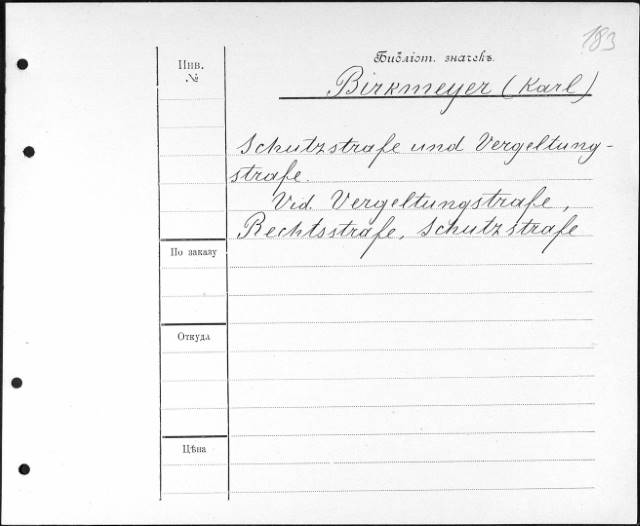 183
Библіот. значекъ.
Инв.
№
Birkmeyer (Karl)
Schutzstrafe und Vergeltung-
strafe.
Vid. Vergeltungstrafe,
Rechtsstrafe, Schutzstrafe
По заказу
Откуда
Цѣна